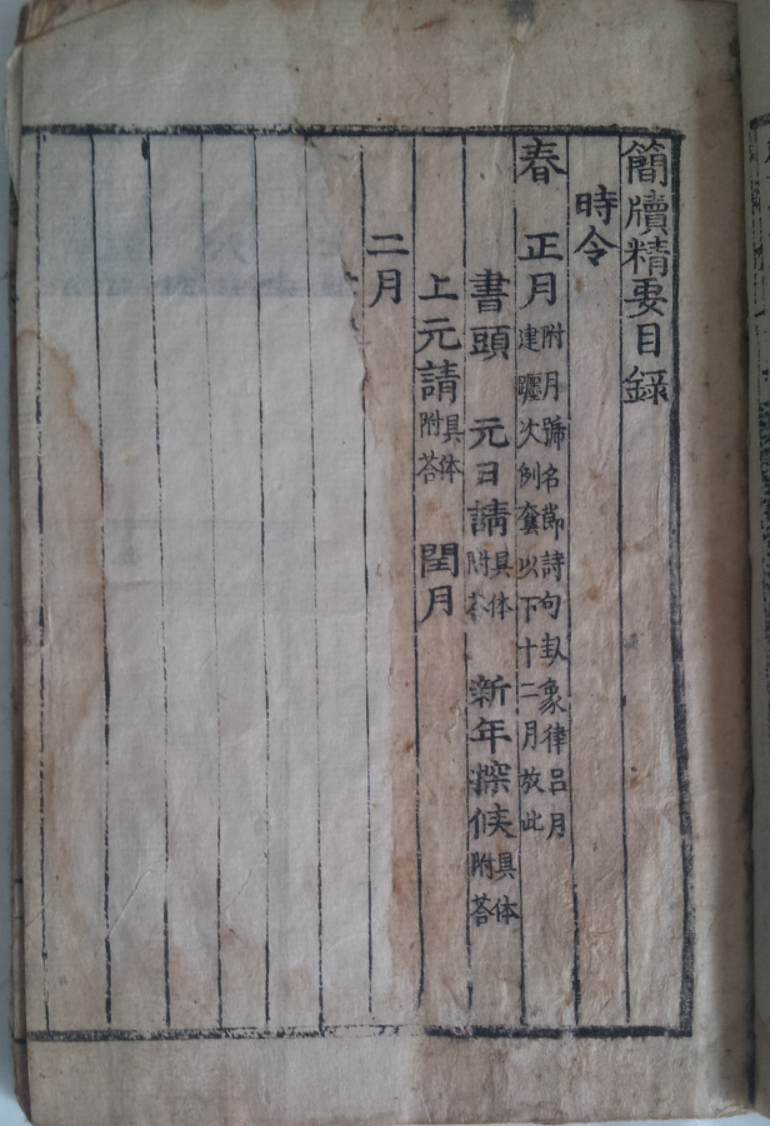 簡牘精要目録
時令
春　正月 附月號名節詩句卦象律呂月建躔次例套以下十二月放此
書頭　元日請 具体附答　新年探候 具体附答
上元請 具体附答　閏月
二月